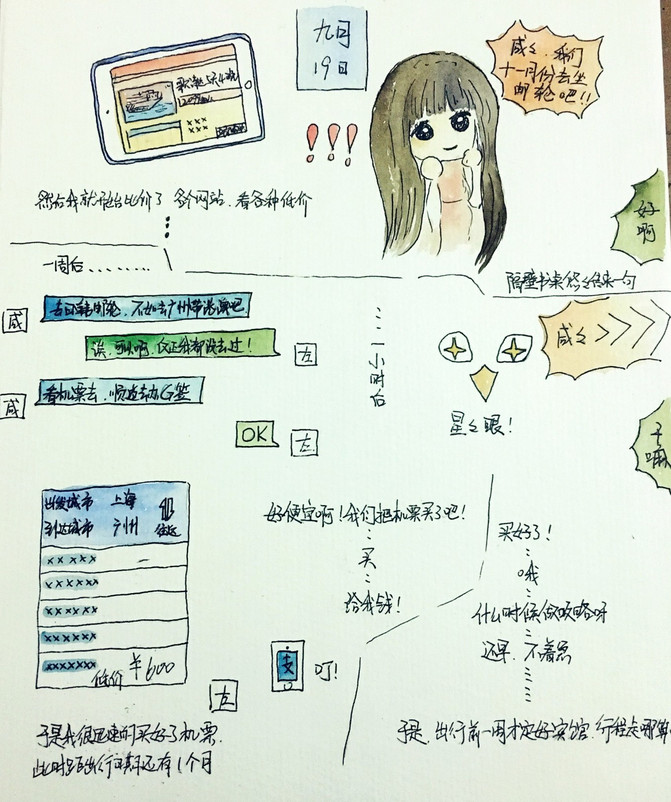 九月
19日
咸咸、我们
十一月份去坐
邮轮吧!!
!!!
×××
×××
然后我就开始比价了 多个网站、看各种低价
好
啊
一周后........
隔壁书桌悠悠传来一句
咸
去日韩邮轮,不如去广州带港澳吧
诶,可以啊,反正我都没去过!
左
咸
看机票去,顺道去办G签
OK
左
一小时后
咸咸>>>>
星星眼!
干
嘛
出发城市 上海
到达城市 广州 往返
×××××
××××××
××××××
××××××
×××××××
低价 ¥600
左
好便宜啊!我们把机票买了吧!
买
给我钱!
支
叮!
买好了!
哦
什么时候做攻略呀
还早、不着急
于是我很迅速的买好了机票.
此时距出行日期还有1个月
于是,出行前一周才定好宾馆、行程走哪算